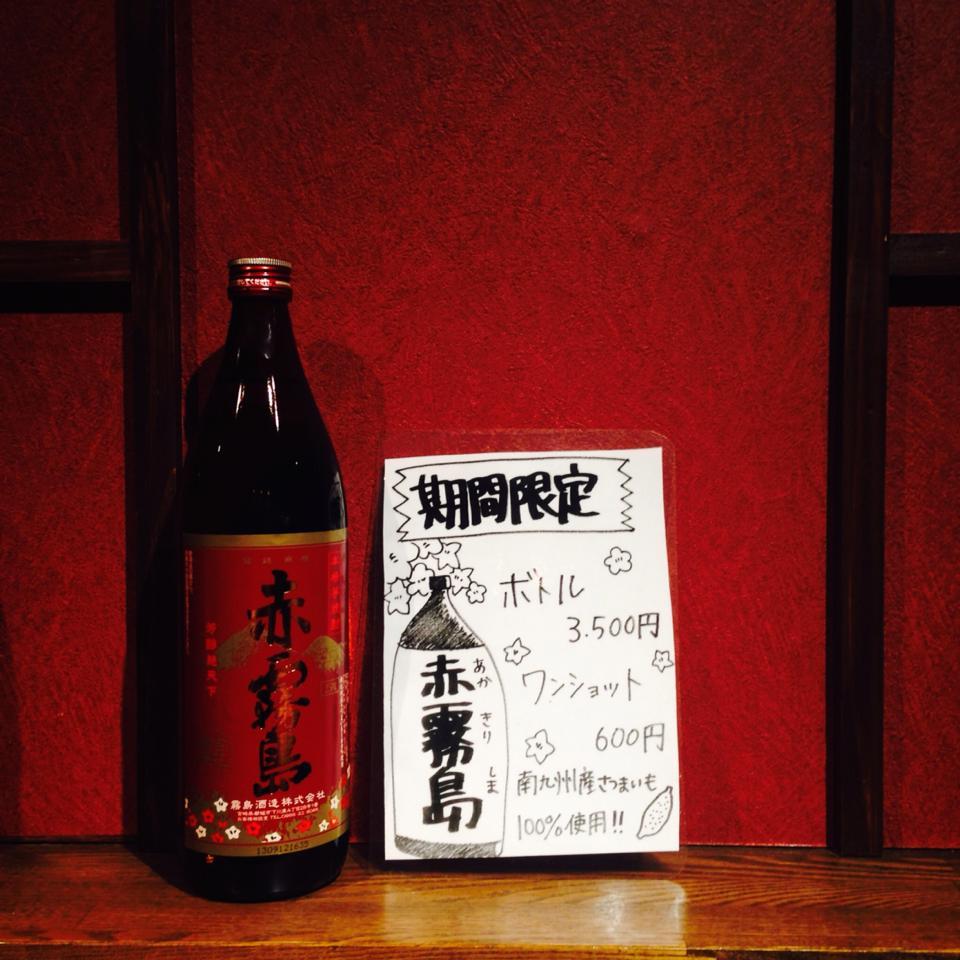 赤霧島
霧島酒造株式会社
1309121635
期間限定
ボトル
3.500円
赤霧島
あか
きり
しま
ワンショット
600円
南九州産さつまいも
100%使用!!